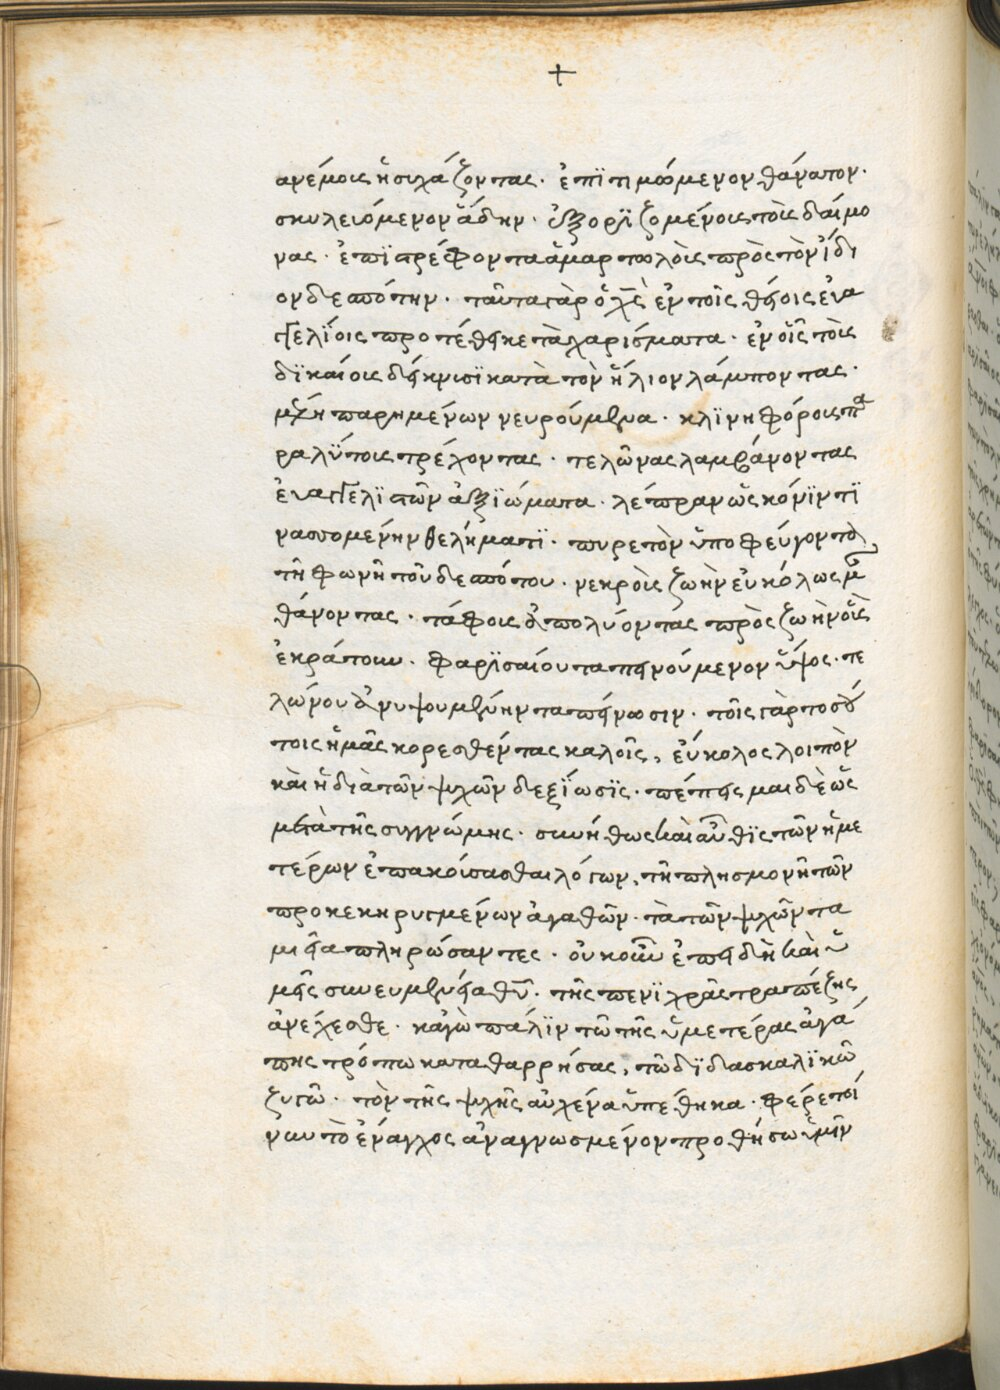 +
ἀνέμοις ἡσυχάζοντας· ἐπϊτιμώμενον θάνατον·
σκυλευόμενον ἅδην· ἐξορϊζομένοις τοὶς δαίμο
νας· ἐπϊστρέφοντα ἁμαρτωλοὶς πρὸς τὸν ἴδι
ον δεσπότην· ταῦτα γὰρ ὁ χς ἐν τοῖς θείοις εὐα
γγελίοις προτέθεικε τὰ χαρίσματα· ἐν οἷς τοὶς
δϊκαίοις δείκνυσϊ κατὰ τὸν ἥλιον λάμποντας·
παρημένων νευρούμενα· κλϊνηφόροις πα
ραλύτοις τρέχοντας· τελώνας λαμβάνοντας
εὐαγγελϊστῶν ἀξϊώματα· λέπραν ὡς κόνϊν τϊ
νασσομένην θελήματϊ· πυρετὸν ὑποφεύγοντα
τῆ φωνῆ τοῦ δεσπότου· νεκροὶς ζωὴν εὐκόλως μ
θάνοντας· τάφοις ἀπολύοντας πρὸς ζωὴν οἳς
ἐκράτουν· φαρϊσαίου ταπεινούμενον ὕψος· τε
λώνου ἀνυψουμένην ταπείνωσιν· τοῖς γὰρ τοσού
τοις ἡμᾶς κορεσθέντας καλοῖς, εὔκολος λοιπὸν
καὶ ἡ διὰ τῶν ψχῶν δεξίωσϊς· πέπεισμαι δὲ ὡς
μετὰ τῆς συγγνώμης· συνήθως καὶ αὖθϊς τῶν ἡμε
τέρων ἐπακούσασθαι λόγων, τῆ πλησμονῆ τῶν
προκεκηρυγμένων ἀγαθῶν· τὰ τῶν ψχῶν τα
μιεῖα πληρώσαντες· οὐκοῦν ἐπειδὴ καὶ ὑ
μεῖς συνευμενείᾳ θυ· τῆς πενϊχρᾶς τραπέζης
ἀνέχεσθε· κἀγὼ πάλϊν τῶ τῆς ὑμετέρας ἀγά
πης τρόπω καταθαρρήσας, τῶ δϊδασκαλϊκῶ
ζυγῶ· τὸν τῆς ψχῆς αὐχένα ὑπέθηκα· φέρε τοί
νυν τὸ ἔναγχος ἀναγνωσμένον προθήσω ὑμῖν